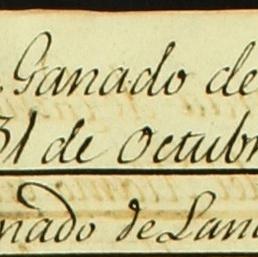 Ganado de
31 de Octubr
nado de Lana